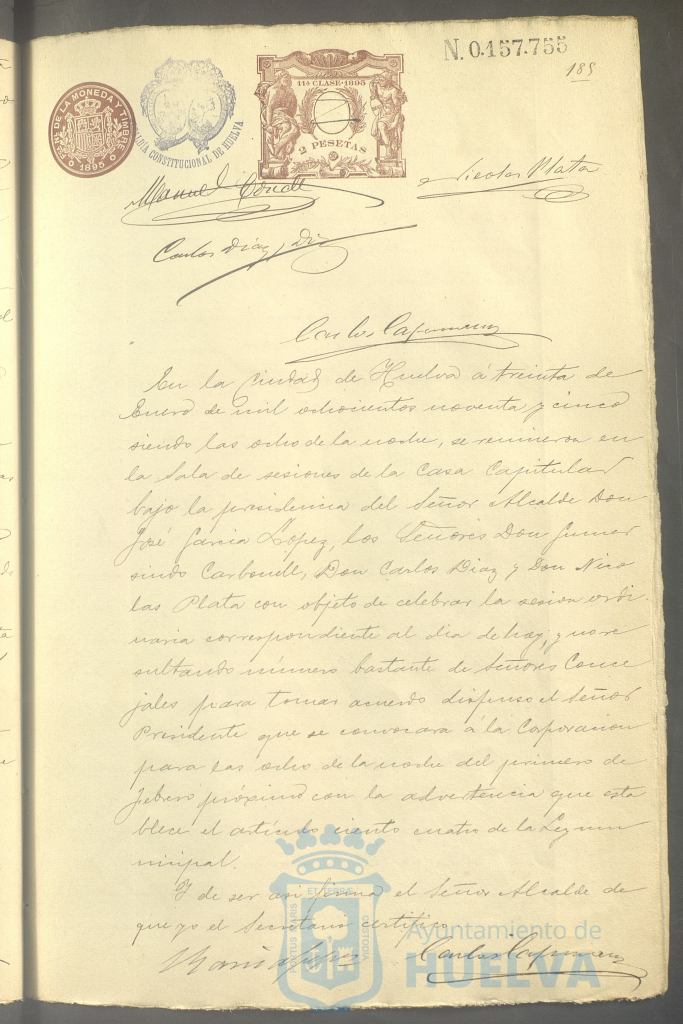 N. 0.157.755
185
FABª DE LA MONEDA Y TIMBRE
1895
ALDIA CONSTITUCIONAL DE HUELVA
11ª CLASE·1895
2 PESETAS
Manuel Conde
Nicolas Plata
Carlos Diaz
Carlos
En la ciudad de Huelva á treinta de
Enero de mil ochocientos noventa y cinco
siendo las ocho de la noche, se reunieron en
la Sala de sesiones de la Casa Capitular
bajo la presidencia del Señor Alcalde Don
José Garcia Lopez, los Señores Don Gumer
sindo Carbonell, Don Carlos Diaz y Don Nico
las Plata con objeto de celebrar la sesion ordi-
naria correspondiente al dia de hoy, y no re
sultando número bastante de Señores Conce
jales para tomar acuerdo dispuso el Señor
Presidente que se convocara á la Corporacion
para las ocho de la noche del primero de
febrero próximo con la advertencia que esta
blece el artículo ciento cuatro de la Ley mu
nicipal.
Y de ser asi firma el Señor Alcalde de
que yo el Secretario certifico
Carlos
ET TERRÆ
PORTUS MARIS
CUSTODIA
Ayuntamiento de
HUELVA